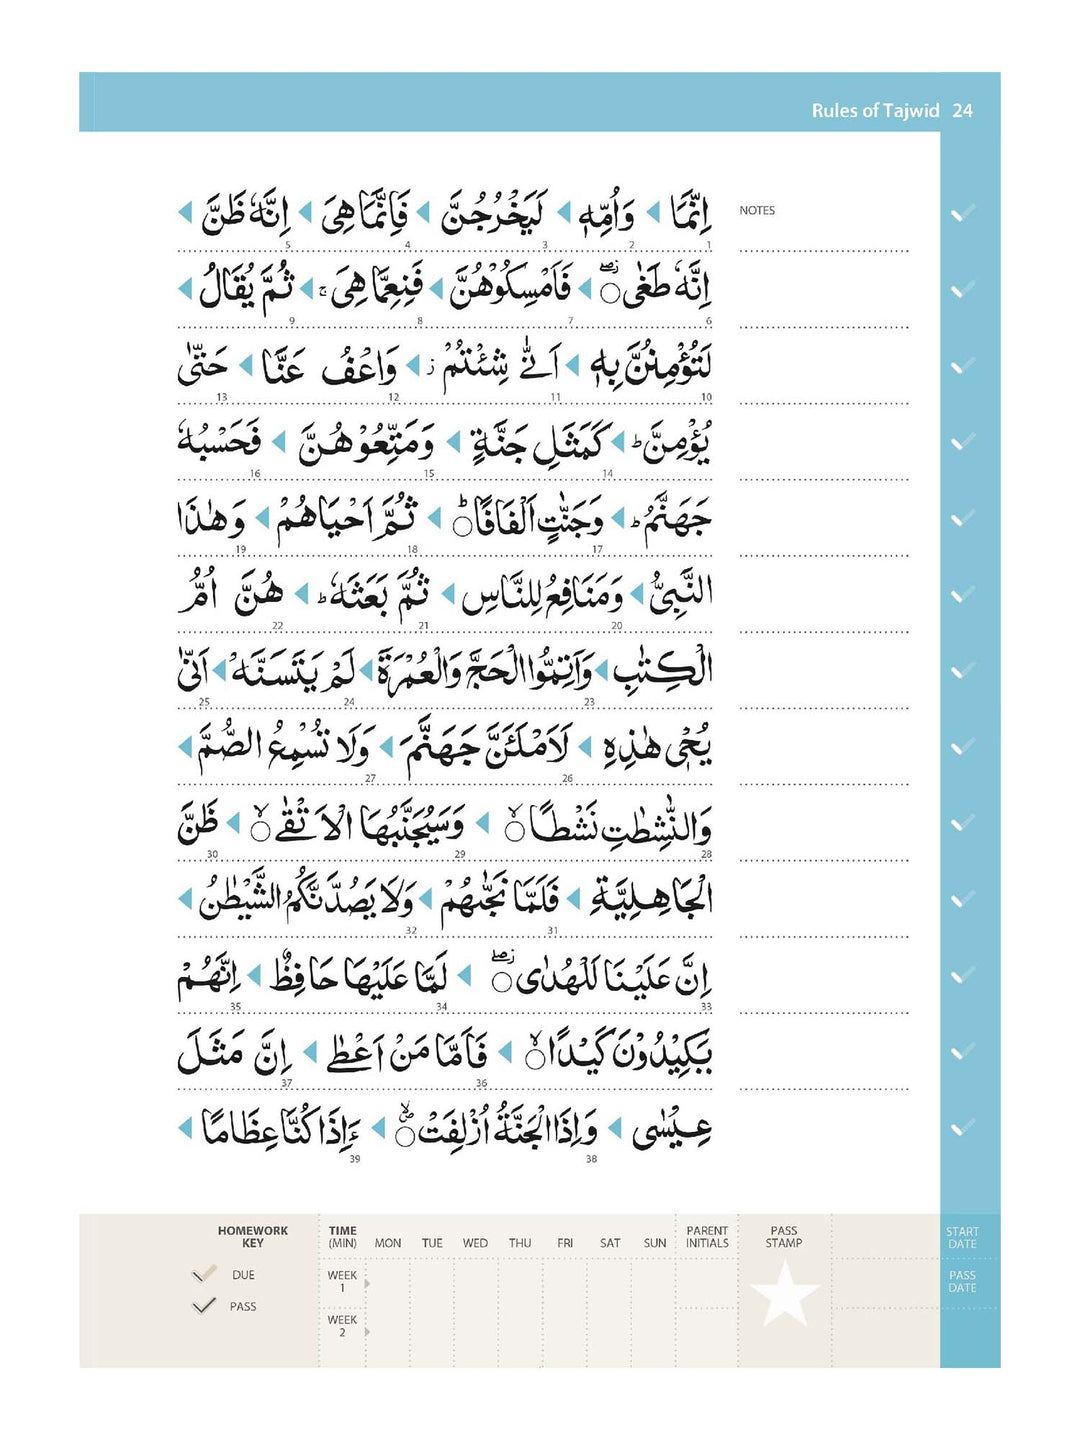 Rules of Tajwid 24
NOTES
اِنَّمَا وَاُمِّهٖ لَيَخْرُجُنَّ فَاِنَّمَا هِىَ اِنَّهٗ ظَنَّ
1 2 3 4 5
اِنَّهٗ طَغٰى فَاَمْسِكُوْهُنَّ فَنِعِمَّا هِىَ ۚ ثُمَّ يُقَالُ
6 7 8 9
لَتُؤْمِنُنَّ بِهٖ اَنّٰى شِئْتُمْ ز وَاعْفُ عَنَّا حَتّٰى
10 11 12 13
يُؤْمِنَّ ط كَمَثَلِ جَنَّةٍ وَمَتِّعُوْهُنَّ فَحَسْبُهٗ
14 15 16
جَهَنَّمُ ط وَجَنّٰتٍ اَلْفَافًا ط ثُمَّ اَحْيَاهُمْ وَهٰذَا
17 18 19
النَّبِىُّ وَمَنَافِعُ لِلنَّاسِ ثُمَّ بَعَثَهٗ ط هُنَّ اُمُّ
20 21 22
الْكِتٰبِ وَاَتِمُّوا الْحَجَّ وَالْعُمْرَةَ لَمْ يَتَسَنَّهْ اَنّٰى
23 24 25
يُحْىٖ هٰذِهِ لَاَمْلَئَنَّ جَهَنَّمَ وَلَا تُسْمِعُ الصُّمَّ
26 27
وَالنّٰشِطٰتِ نَشْطًا لا وَسَيُجَنَّبُهَا الْاَتْقٰى لا ظَنَّ
28 29 30
الْجَاهِلِيَّةِ فَلَمَّا نَجّٰىهُمْ وَلَا يَصُدَّنَّكُمُ الشَّيْطٰنُ
31 32
اِنَّ عَلَيْنَا لَلْهُدٰى لَمَّا عَلَيْهَا حَافِظٌ اِنَّهُمْ
33 34 35
يَكِيْدُوْنَ كَيْدًا لا فَاَمَّا مَنْ اَعْطٰى اِنَّ مَثَلَ
36 37
عِيْسٰى وَاِذَا الْجَنَّةُ اُزْلِفَتْ ءَاِذَا كُنَّا عِظَامًا
38 39
HOMEWORK KEY
DUE
PASS
TIME (MIN) MON TUE WED THU FRI SAT SUN PARENT INITIALS PASS STAMP START DATE
WEEK 1
WEEK 2
PASS DATE